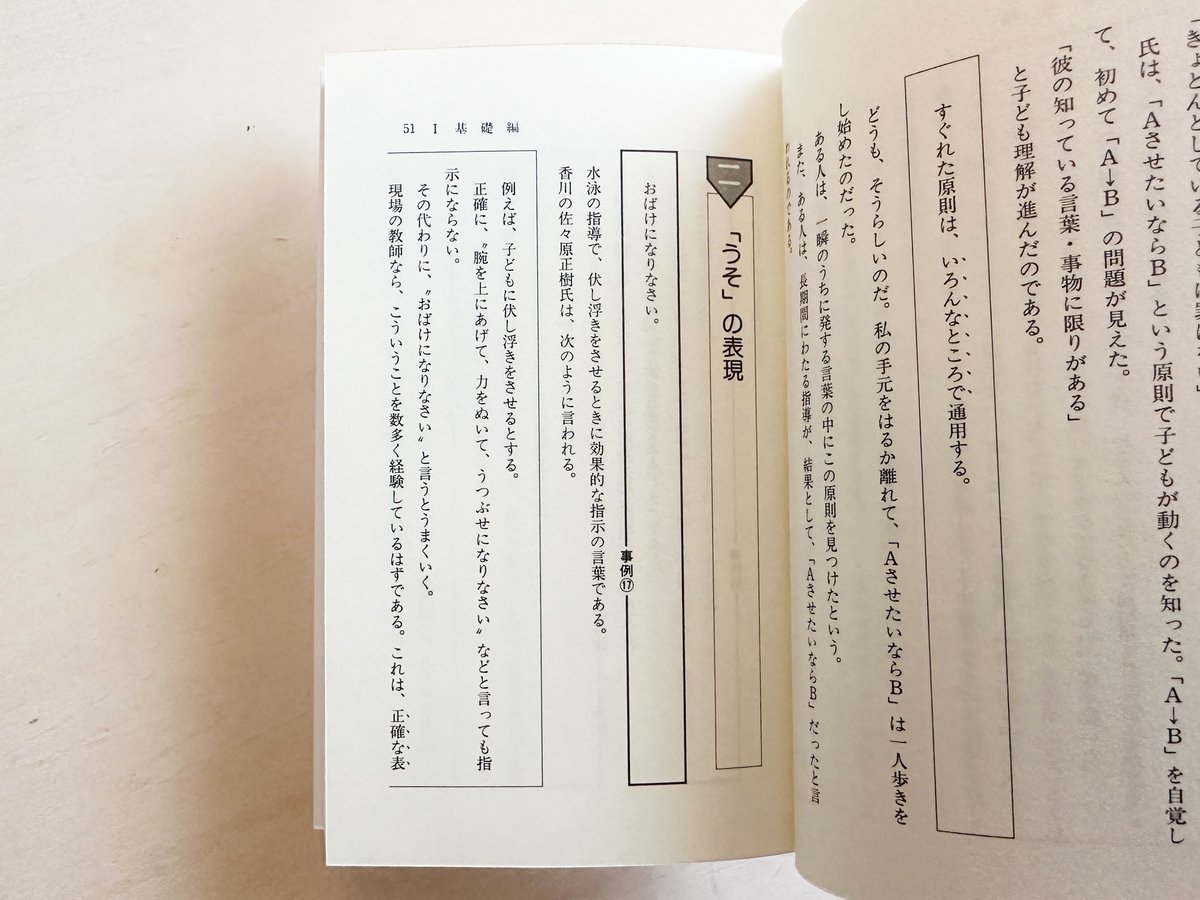 氏は、「AさせたいならB」という原則で子どもが動くのを知った。「A→B」を自覚し
て、初めて「A→B」の問題が見えた。
「彼の知っている言葉・事物に限りがある」
と子ども理解が進んだのである。
すぐれた原則は、いろんなところで通用する。
どうも、そうらしいのだ。私の手元をはるか離れて、「AさせたいならB」は一人歩きを
し始めたのだった。
ある人は、一瞬のうちに発する言葉の中にこの原則を見つけたという。
また、ある人は、長期間にわたる指導が、結果として、「AさせたいならB」だったと言
われるのである。
二
「うそ」の表現
おばけになりなさい。
事例⑰
水泳の指導で、伏し浮きをさせるときに効果的な指示の言葉である。
香川の佐々原正樹氏は、次のように言われる。
例えば、子どもに伏し浮きをさせるとする。
正確に、〝腕を上にあげて、力をぬいて、うつぶせになりなさい〟などと言っても指
示にならない。
その代わりに、〝おばけになりなさい〟と言うとうまくいく。
現場の教師なら、こういうことを数多く経験しているはずである。これは、正確な表
51 Ⅰ 基礎編